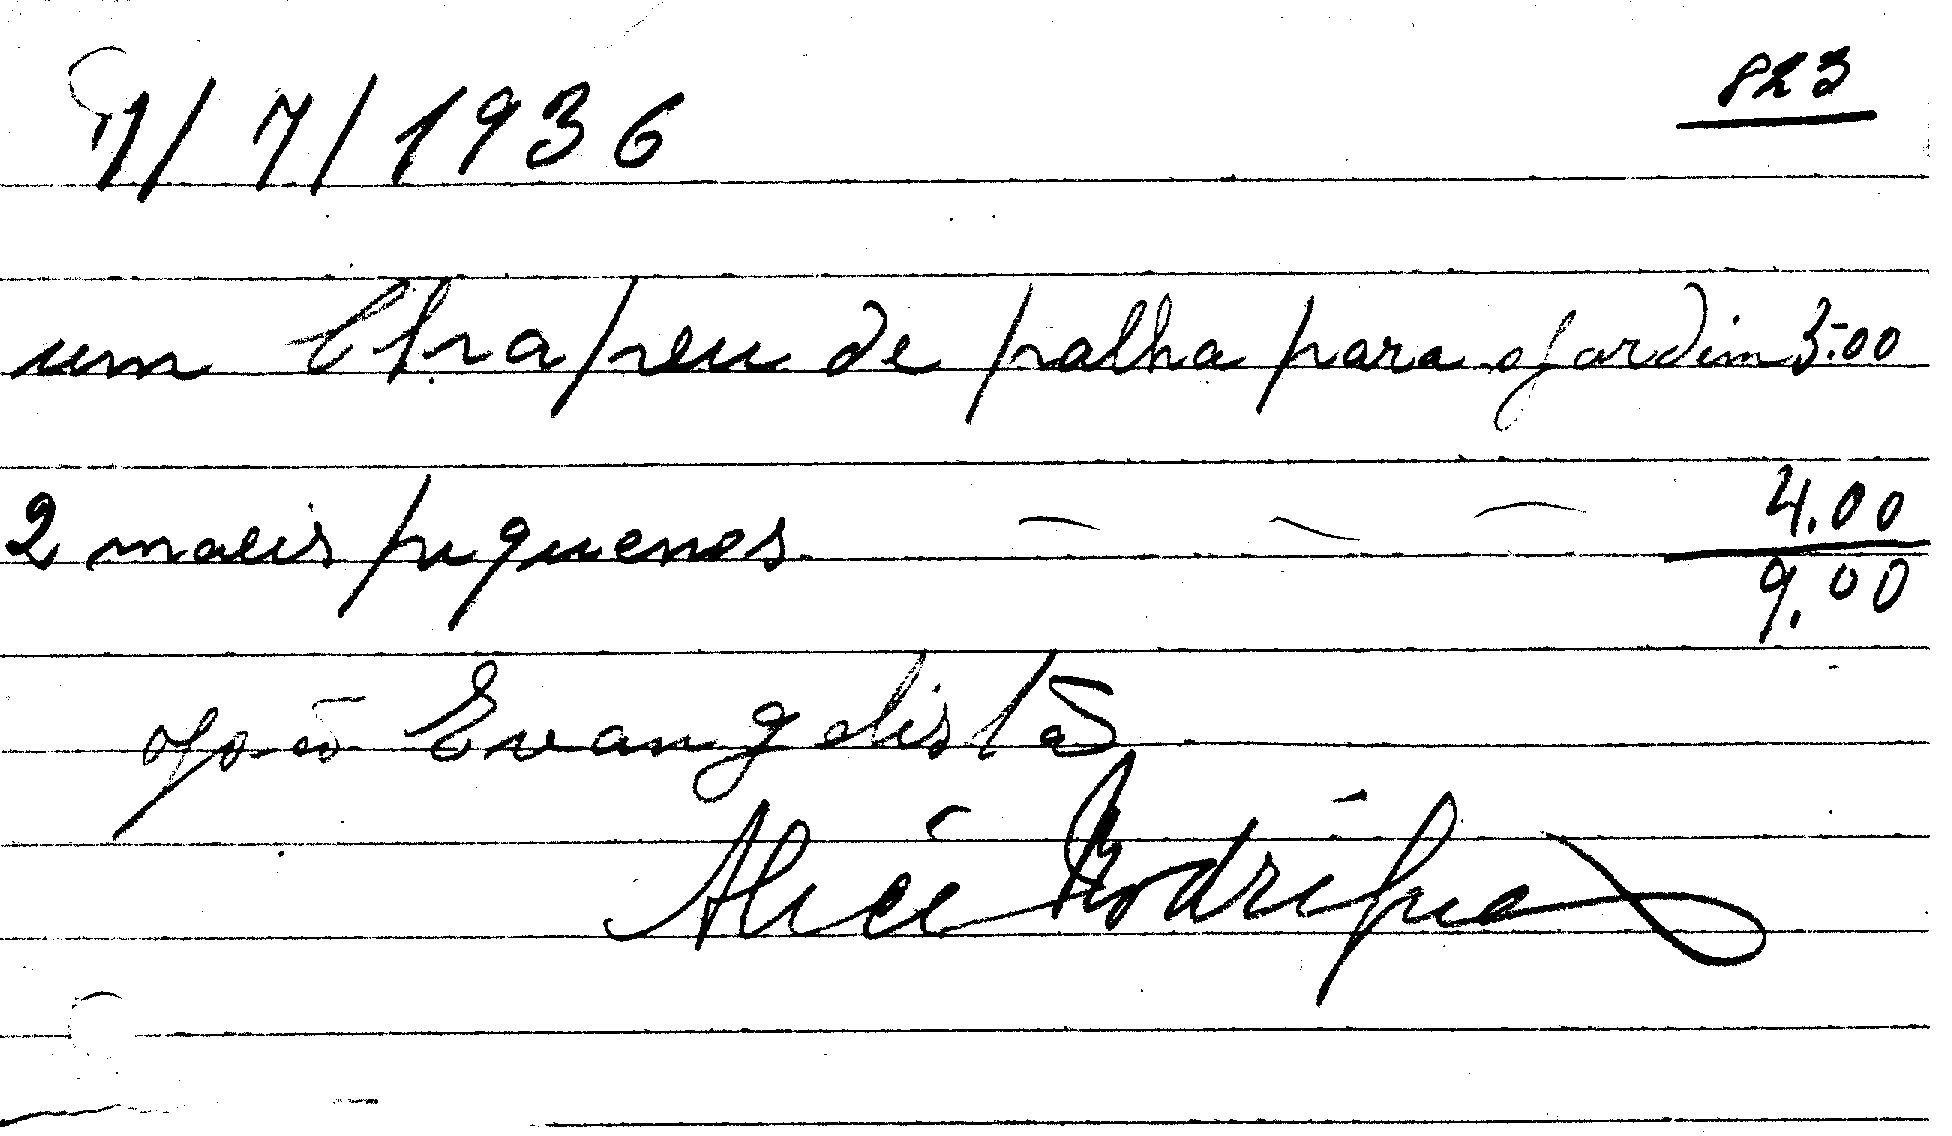 823
7/7/1936
um Chapeu de palha para Jardim 5.00
2 mais pequenos - - - 4.00
9.00
João Evangelista
Alice Rodrigues